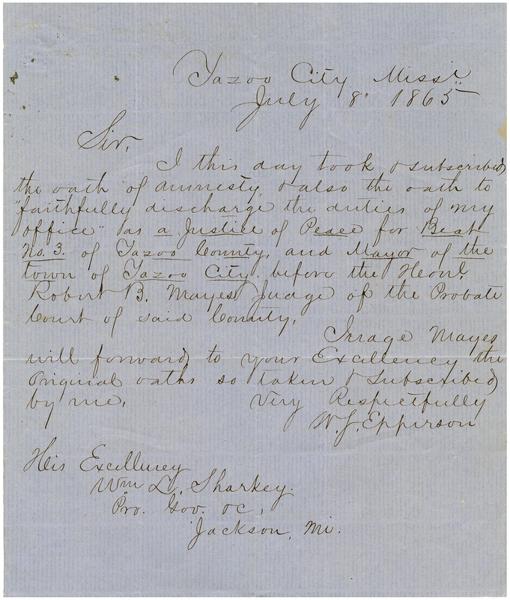 Yazoo City Missi
July 8' 1865
Sir,
I this day took & subscribed
the oath of amnesty, & also the oath to
"faithfully discharge the duties of my
office" as a Justice of Peace for Beat
No. 3. of Yazoo County, and Mayor of the
town of Yazoo City, before the Honl.
Robert B. Mayes Judge of the Probate
Court of said County.
Mayes
will forward to your Excellency the
Original oaths so taken & subscribed
by me. Very Respectfully
W. J. Epperson
His Excellency
Wm L. Sharkey.
Pro. Gov. &c,
Jackson, Mi.